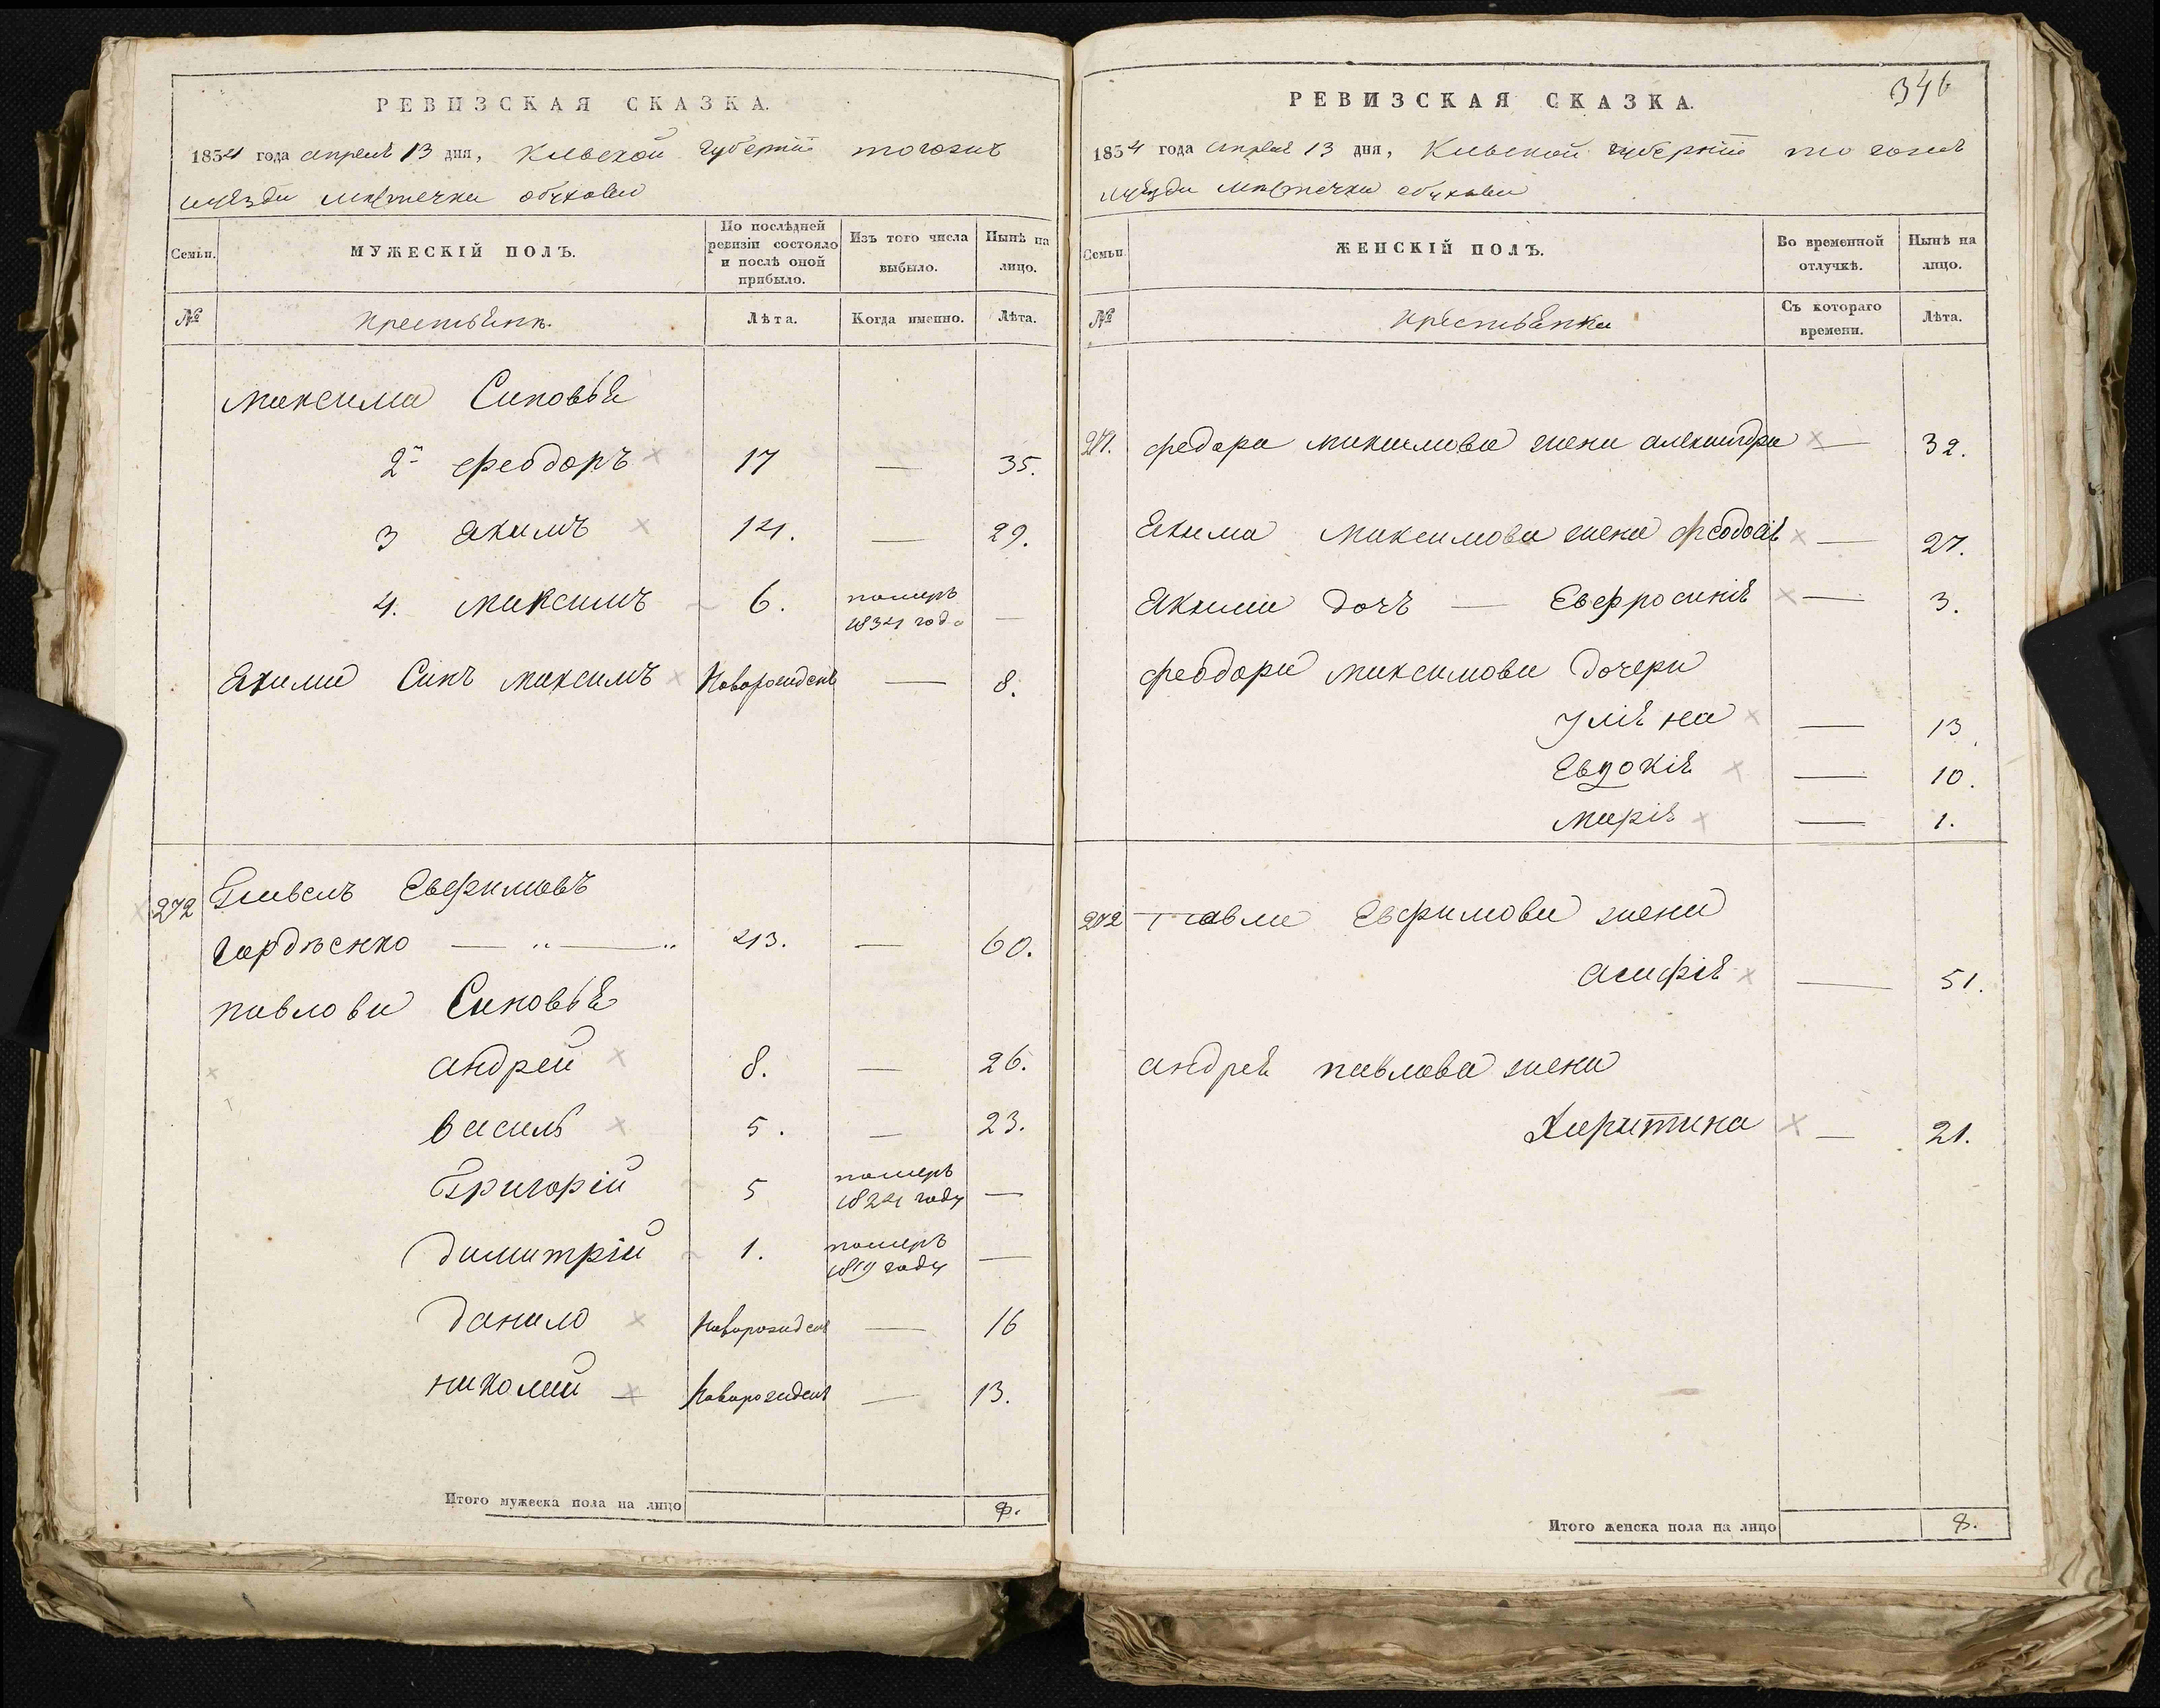 РЕВИЗСКАЯ СКАЗКА.
1854 года апреля 13 дня, Киевской Губернии тогожъ
уезда местечка обухова
Семьи. МУЖЕСКІЙ ПОЛЪ. По послѣдней ревизіи состояло и послѣ оной прибыло. Изъ того числа выбыло. Нынѣ на лицо.
№ Крестьяне. Лѣта. Когда именно. Лѣта.
максима Синовья
2й Феодоръ 17 — 35.
3 Якимъ 14. — 29.
4. максимъ 6. померъ 1834 года —
Якима Синъ максимъ Новорожденъ — 8.
272 Павелъ Евфимовъ
Гордѣенко — „ — „ 43. — 60.
павлови Синовья
андрей 8. — 26.
василь 5. — 23.
Григорій 5 померъ 1824 году —
димитрій 1. померъ 1819 году —
данило Новорожденъ — 16
николай — Новорожденъ — 13.
Итого мужеска пола на лицо 8.
346
РЕВИЗСКАЯ СКАЗКА.
1854 года апреля 13 дня, Киевской губерніи тогожъ
уезда местечка обухова
Семьи ЖЕНСКІЙ ПОЛЪ. Во временной отлучкѣ. Нынѣ на лицо.
№ Крестьянки Съ котораго времени. Лѣта.
271. федора максимова жена александра — 32.
Якима максимова жена феодосія — 27.
Якима дочь — Евфросинія — 3.
феодора максимова дочери
Уліяна — 13
Евдокія — 10.
марія — 1.
272 Павла Евфимова жена
агафія — 51.
андрея павлова жена
Харитина — 21.
Итого женска пола на лицо 8.